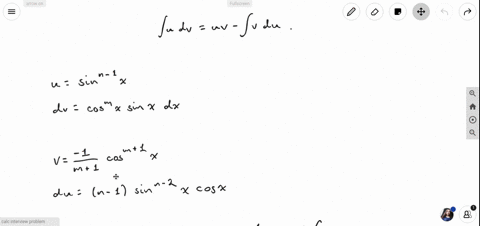 ∫u dv = uv - ∫v du .
u = sin^{n-1} x
dv = cos^m x sin x dx
v = \frac{-1}{m+1} cos^{m+1} x
du = (n-1) sin^{n-2} x cosx
calc interview problem